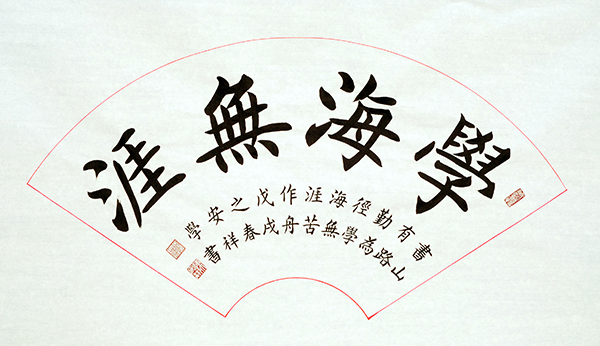 學海無涯
書山
有路
勤為
徑學
海無
涯苦
作舟
戊戌
之春
安祥
學書